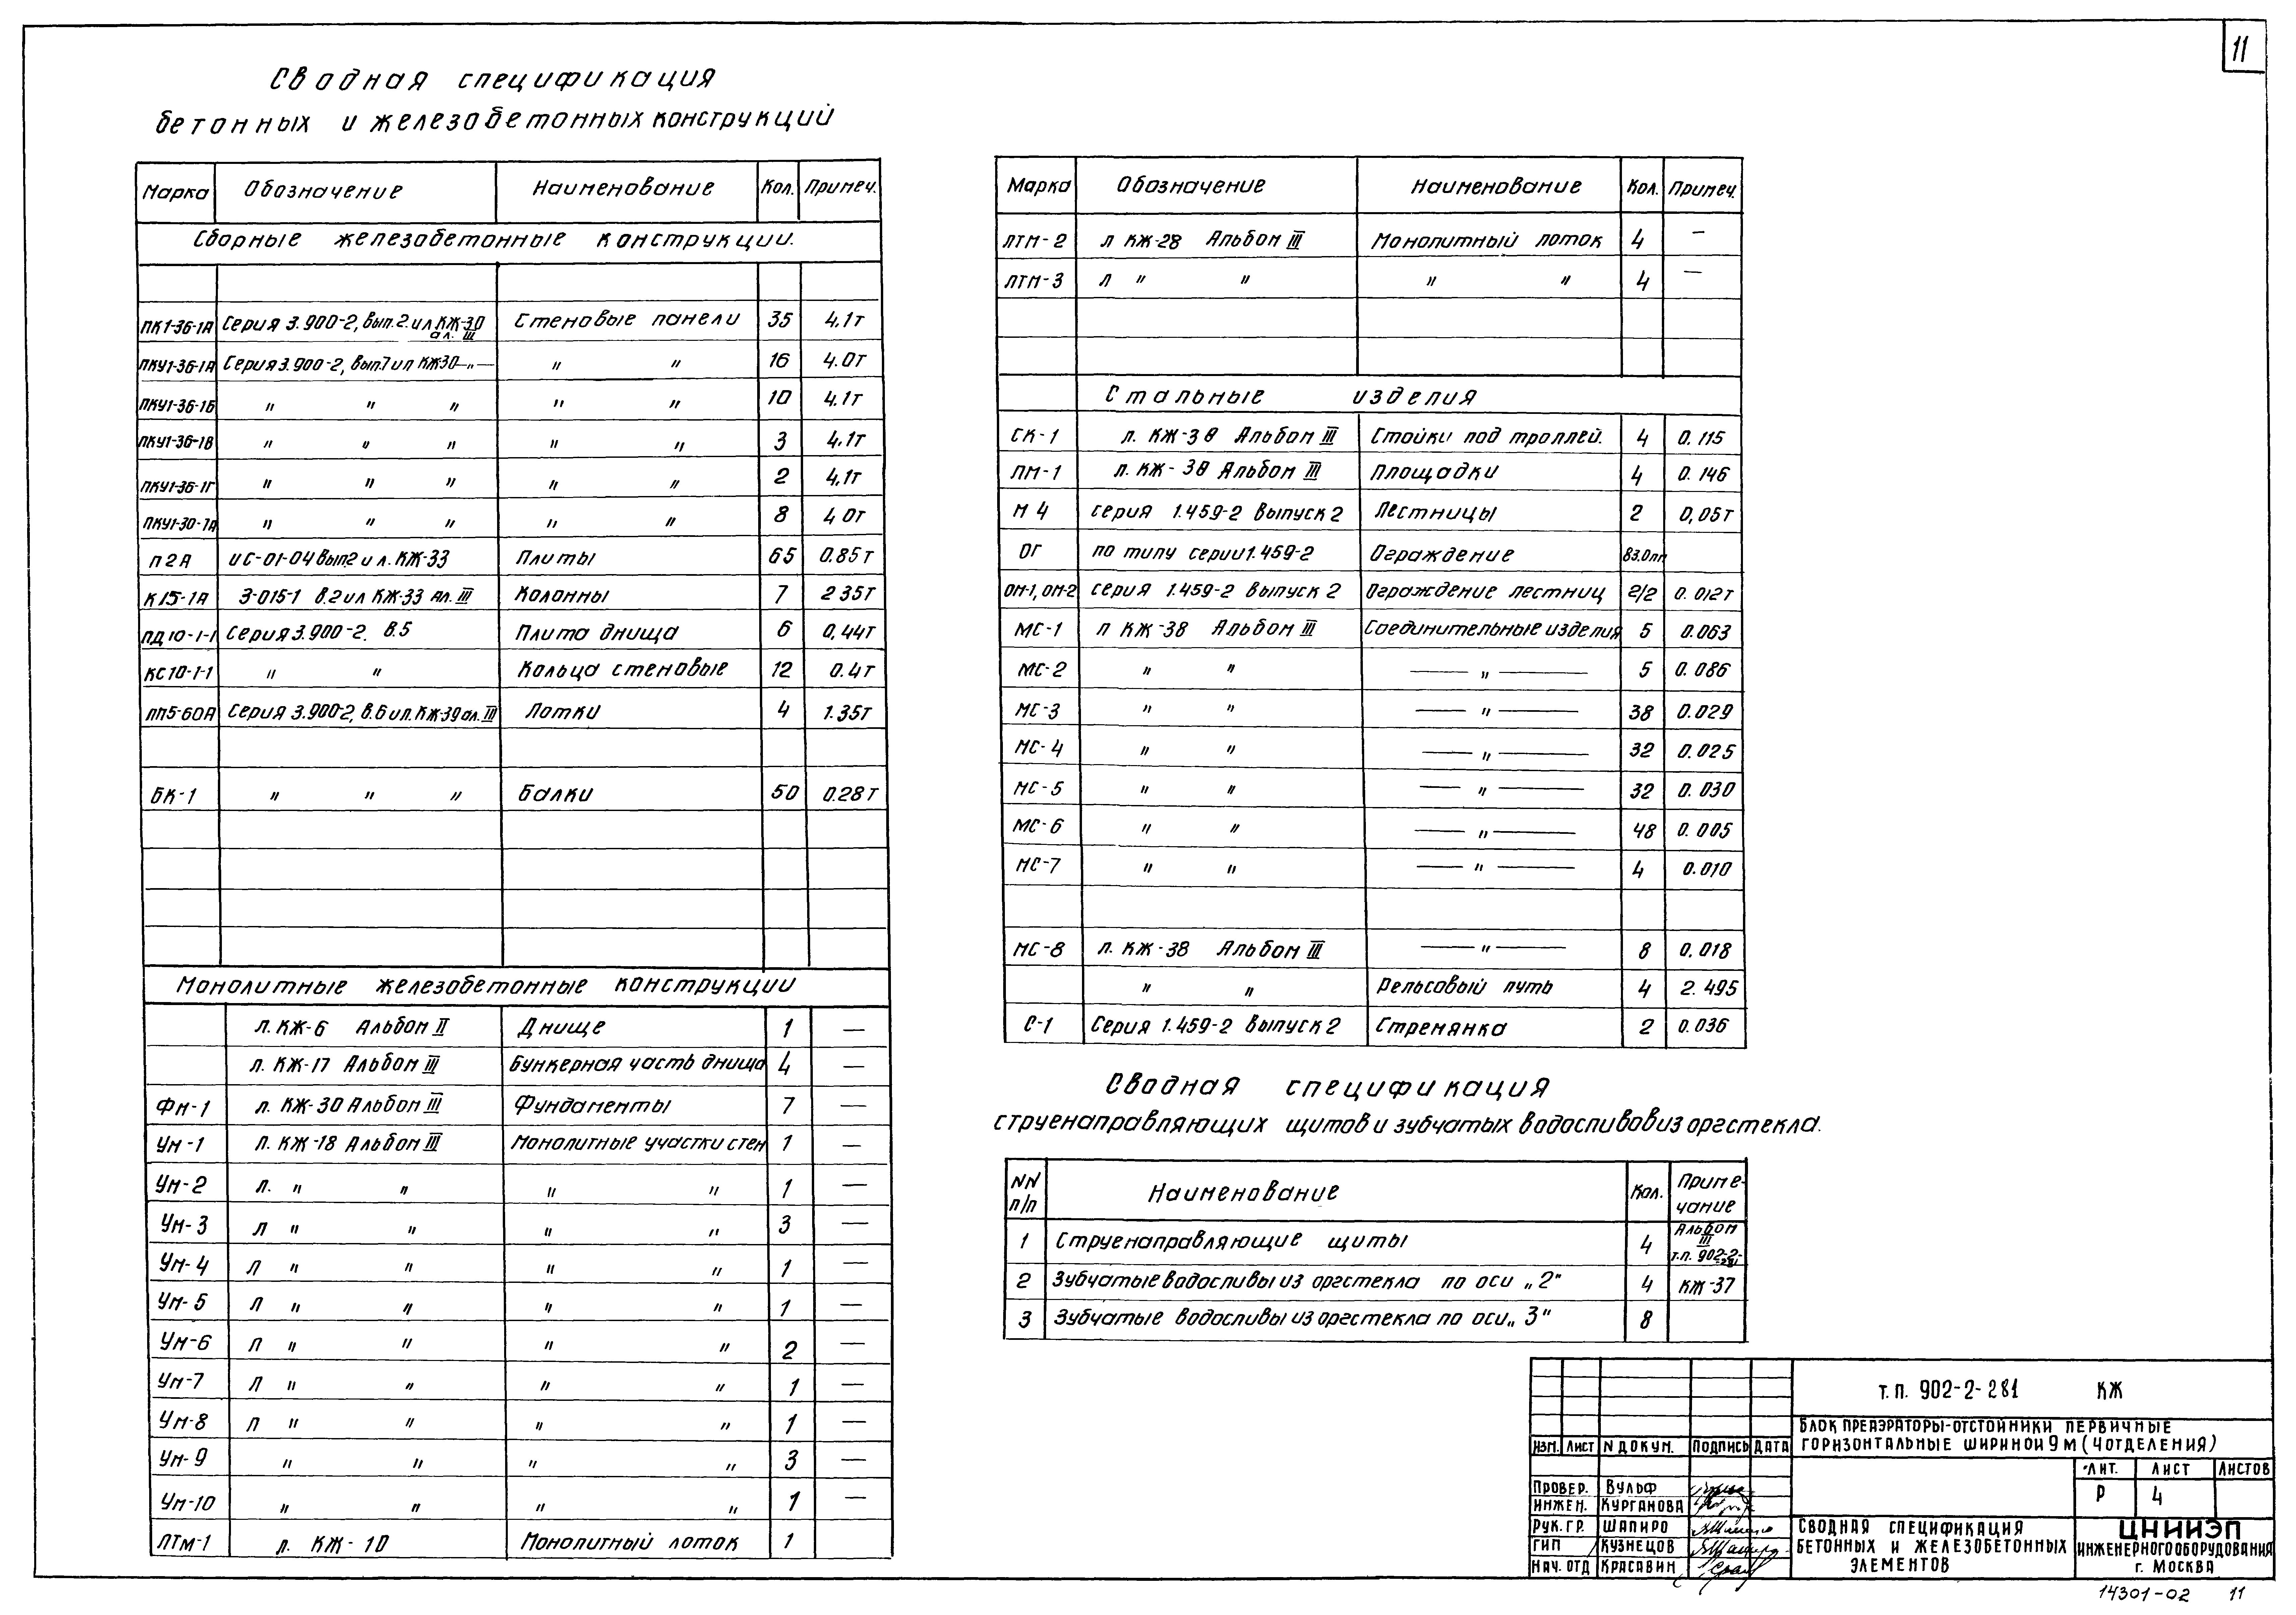 11
Сводная спецификация
бетонных и железобетонных конструкций
Марка Обозначение Наименование Кол. Примеч.
Сборные железобетонные конструкции.
ПК1-36-1А Серия 3.900-2, вып.2. и л КЖ-30 ал. III Стеновые панели 35 4,1т
ПКУ1-36-1А Серия 3.900-2, вып.7 и л КЖ30 —„— " " 16 4.0т
ПКУ1-36-1Б " " " " " 10 4.1т
ПКУ1-36-1В " " " " " 3 4,1т
ПКУ1-36-1Г " " " " " 2 4,1т
ПКУ1-30-1А " " " " " 8 4 0т
П2А ИС-01-04 вып2 и л. КЖ-33 Плиты 65 0.85т
К15-1А 3-015-1 в.2 и л КЖ-33 ал. III Колонны 7 2 35т
ПД10-1-1 Серия 3.900-2. в.5 Плита днища 6 0,44т
КС10-1-1 " " Кольца стеновые 12 0.4т
ЛП5-60А Серия 3.900-2, в.6 и л. КЖ-39 ал. III Лотки 4 1.35т
БК-1 " " " Балки 50 0.28т
Монолитные железобетонные конструкции
л. КЖ-6 Альбом II Днище 1 —
л. КЖ-17 Альбом III Бункерная часть днища 4 —
Фм-1 л. КЖ-30 Альбом III Фундаменты 7 —
Ум-1 Л. КЖ-18 Альбом III Монолитные участки стен 1 —
Ум-2 л. " " " " 1 —
Ум-3 л " " " " 3 —
Ум-4 л " " " " 1 —
Ум-5 л " " " " 1 —
Ум-6 л " " " " 2 —
Ум-7 л " " " " 1 —
Ум-8 л " " " " 1 —
Ум-9 " " " " 3 —
Ум-10 " " " " 1 —
ЛТм-1 л. КЖ-10 Монолитный лоток 1
Марка Обозначение Наименование Кол. Примеч.
ЛТМ-2 л КЖ-28 Альбом III Монолитный лоток 4 —
ЛТМ-3 л " " " " 4 —
Стальные изделия
СК-1 л. КЖ-38 Альбом III Стойки под троллей. 4 0.115
ПМ-1 л. КЖ-38 Альбом III Площадки 4 0.146
М4 серия 1.459-2 выпуск 2 Лестницы 2 0,05т
ОГ по типу серии 1.459-2 Ограждение 83.0пм
ОМ-1, ОМ-2 серия 1.459-2 выпуск 2 Ограждение лестниц 2/2 0.012т
МС-1 л КЖ-38 Альбом III Соединительные изделия 5 0.063
МС-2 " " —„— 5 0.086
МС-3 " " —„— 38 0.029
МС-4 " " —„— 32 0.025
МС-5 " " —„— 32 0.030
МС-6 " " —„— 48 0.005
МС-7 " " —„— 4 0.010
МС-8 л. КЖ-38 Альбом III —„— 8 0.018
" " Рельсовый путь 4 2.495
С-1 Серия 1.459-2 выпуск 2 Стремянка 2 0.036
Сводная спецификация
струенаправляющих щитов и зубчатых водосливов из оргстекла.
NN п/п Наименование Кол. Приме-чание
1 Струенаправляющие щиты 4 Альбом III т.п. 902-2-281
2 Зубчатые водосливы из оргстекла по оси „2" 4 КЖ-37
3 Зубчатые водосливы из оргстекла по оси „3" 8
Т.П. 902-2-281 КЖ
БЛОК ПРЕАЭРАТОРЫ-ОТСТОЙНИКИ ПЕРВИЧНЫЕ
ГОРИЗОНТАЛЬНЫЕ ШИРИНОЙ 9 М (4 ОТДЕЛЕНИЯ)
ИЗМ. ЛИСТ N ДОКУМ. ПОДПИСЬ ДАТА
ЛИТ. ЛИСТ ЛИСТОВ
Р 4
ПРОВЕР. ВУЛЬФ
ИНЖЕН. КУРГАНОВА
РУК. ГР. ШАПИРО
ГИП КУЗНЕЦОВ
НАЧ. ОТД КРАСАВИН
СВОДНАЯ СПЕЦИФИКАЦИЯ
БЕТОННЫХ И ЖЕЛЕЗОБЕТОННЫХ
ЭЛЕМЕНТОВ
ЦНИИЭП
ИНЖЕНЕРНОГО ОБОРУДОВАНИЯ
г. МОСКВА
14301-02 11